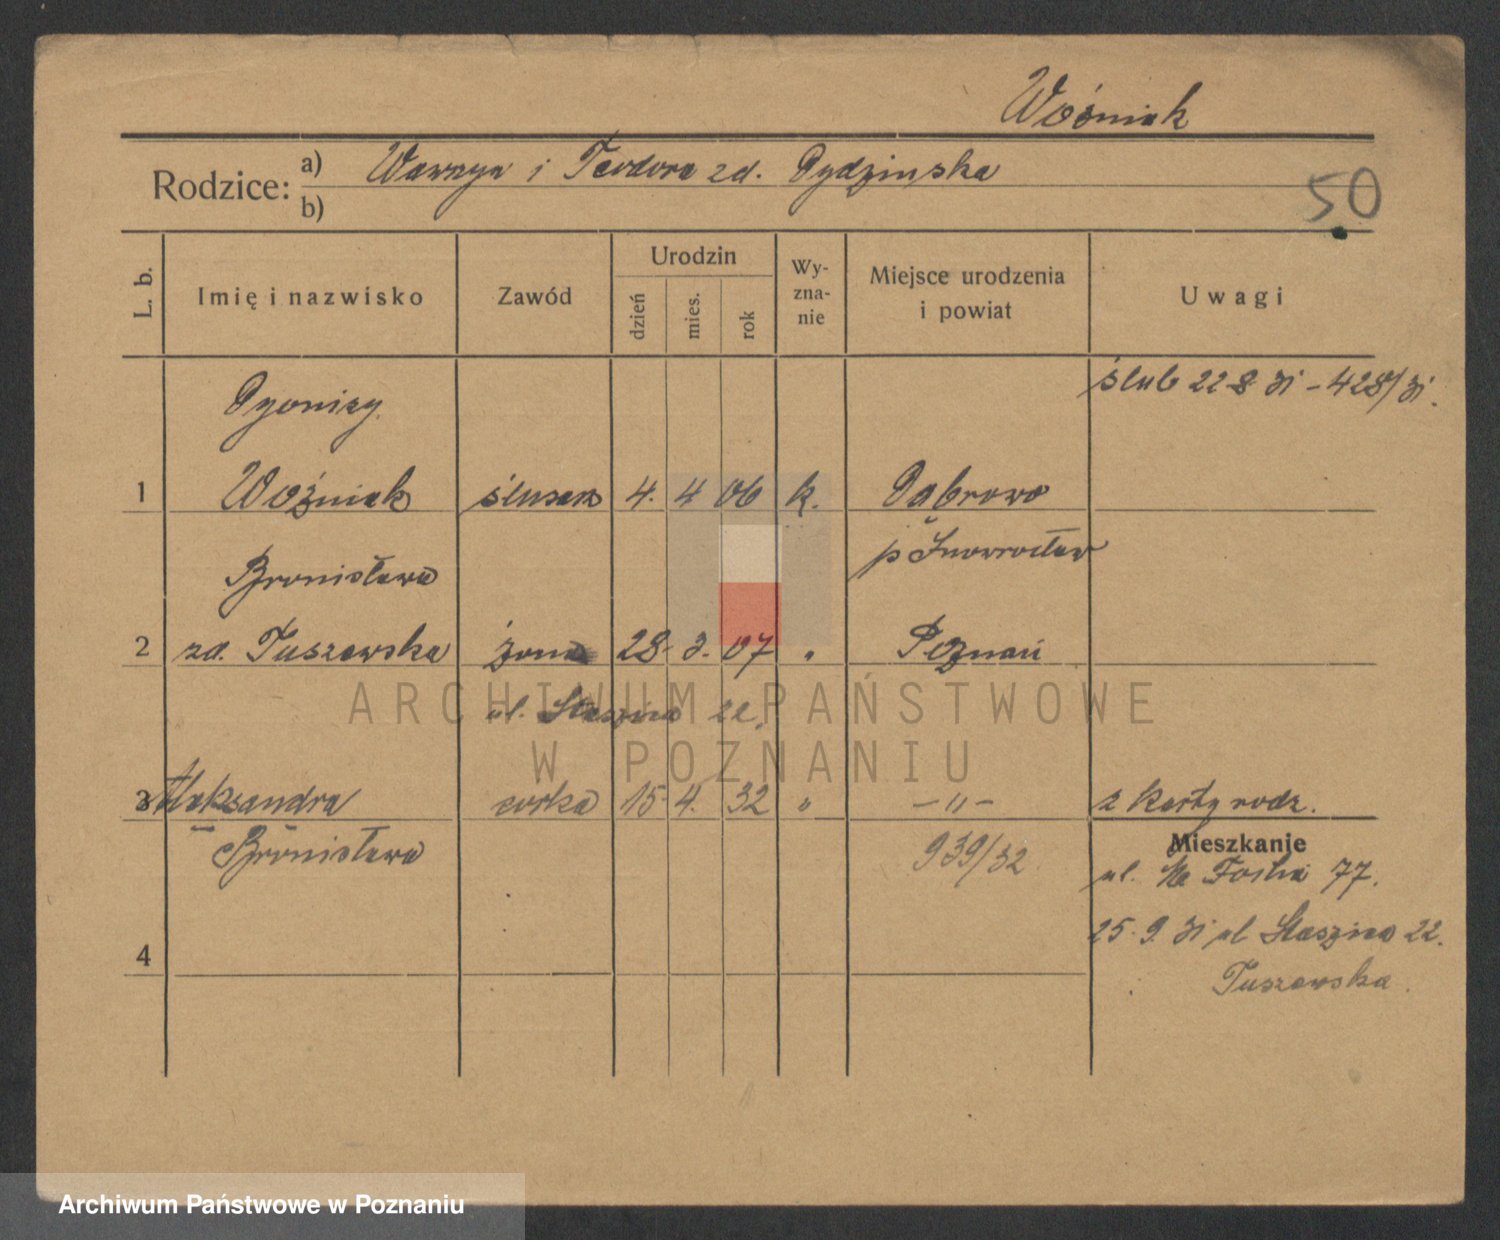 Woźniak
Rodzice: a) Wawrzyn i Teodora zd. Dydzinska
b)
50
L. b.
Imię i nazwisko
Zawód
Urodzin
dzień
mies.
rok
Wy-
zna-
nie
Miejsce urodzenia
i powiat
Uwagi
ślub 22 8 31 - 428/31.
Dyonizy
1 Woźniak ślusarz 4. 4 06 k. Dąbrowa
p Inowrocław
Bronisława
2 zd. Tuszewska żona 28. 3. 07 " Poznań
ul. Staszica 22.
ARCHIWUM PAŃSTWOWE
W POZNANIU
3 Aleksandra corka 15. 4. 32 " - " - z karty rodz.
Bronisława 939/32
Mieszkanie
ul. M Focha 77.
25. 9. 31 ul Staszica 22.
4
Tuszewska.
Archiwum Państwowe w Poznaniu